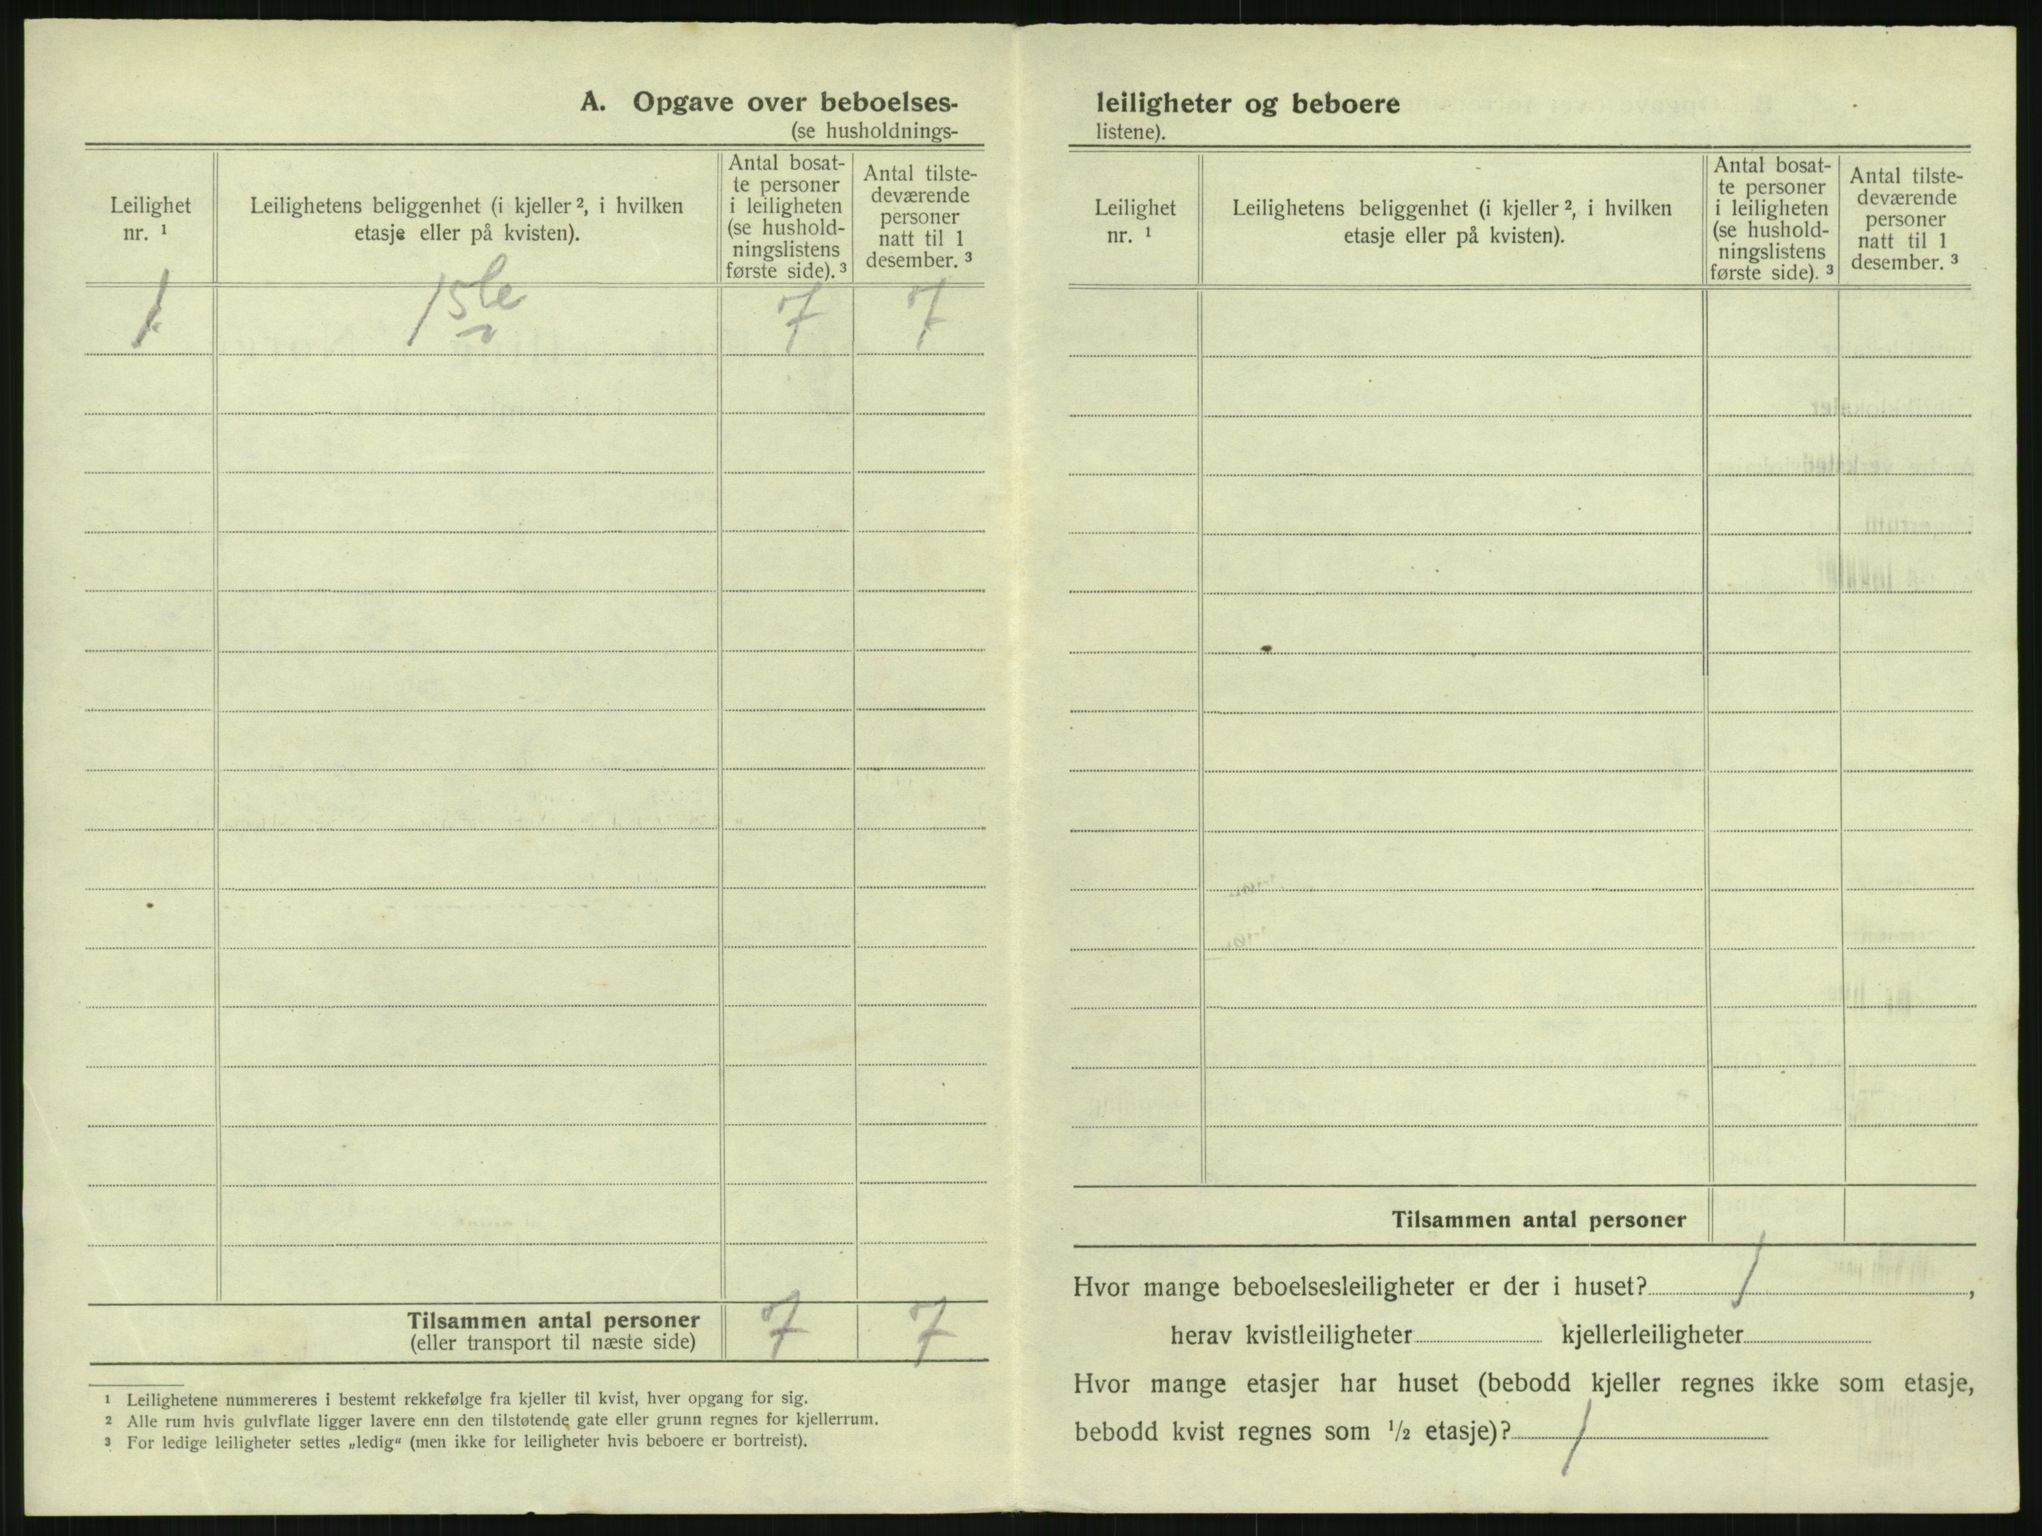 A. Opgave over beboelses-
(se husholdnings-
Leilighet
nr. ¹
Leilighetens beliggenhet (i kjeller ², i hvilken
etasje eller på kvisten).
Antal bosat-
te personer
i leiligheten
(se hushold-
ningslistens
første side). ³
Antal tilste-
deværende
personer
natt til 1
desember. ³
1 1ste 7 7
Tilsammen antal personer 7 7
(eller transport til næste side)
¹ Leilighetene nummereres i bestemt rekkefølge fra kjeller til kvist, hver opgang for sig.
² Alle rum hvis gulvflate ligger lavere enn den tilstøtende gate eller grunn regnes for kjellerrum.
³ For ledige leiligheter settes „ledig“ (men ikke for leiligheter hvis beboere er bortreist).
leiligheter og beboere
listene).
Leilighet
nr. ¹
Leilighetens beliggenhet (i kjeller ², i hvilken
etasje eller på kvisten).
Antal bosat-
te personer
i leiligheten
(se hushold-
ningslistens
første side). ³
Antal tilste-
deværende
personer
natt til 1
desember. ³
Tilsammen antal personer
Hvor mange beboelsesleiligheter er der i huset? 1,
herav kvistleiligheter kjellerleiligheter
Hvor mange etasjer har huset (bebodd kjeller regnes ikke som etasje,
bebodd kvist regnes som ½ etasje)? 1